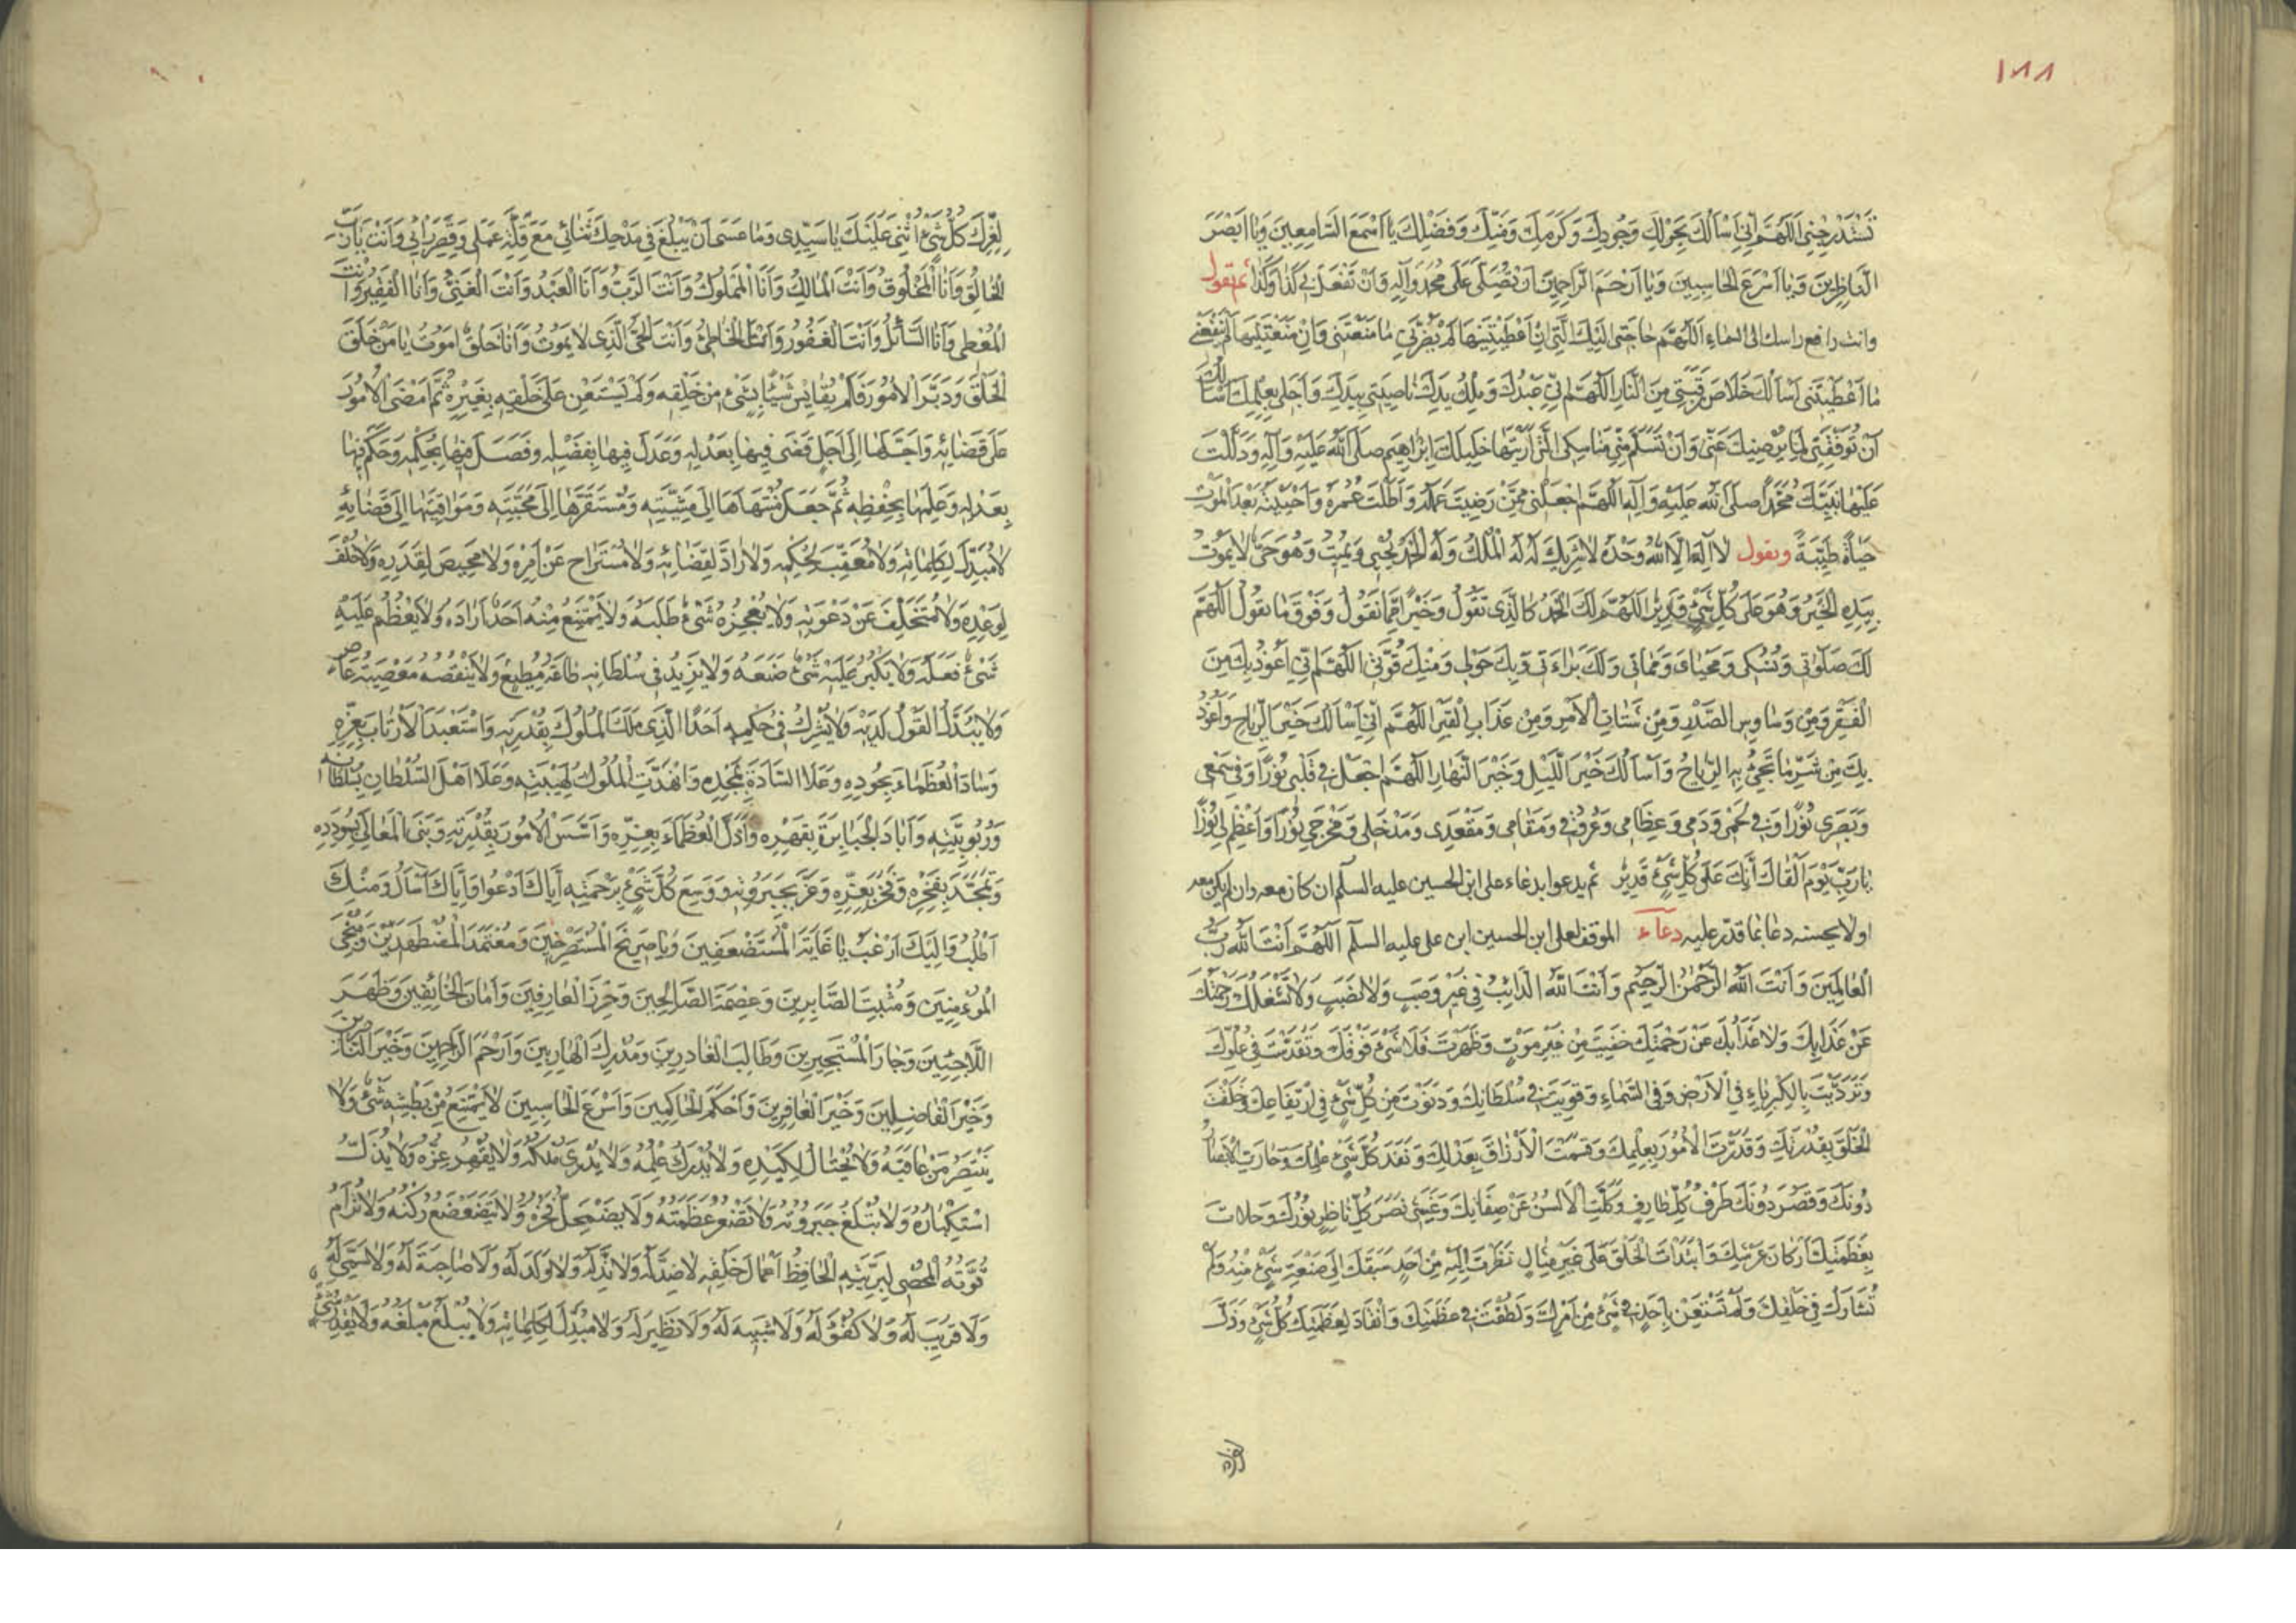 ١٨٨
تَسْتَدْرِجْنِي اَللّٰهُمَّ اِنِّي اَسْاَلُكَ بِحَوْلِكَ وَجُودِكَ وَكَرَمِكَ وَمَنِّكَ وَفَضْلِكَ يَا اَسْمَعَ السَّامِعِينَ وَيَا اَبْصَرَ
النَّاظِرِينَ وَيَا اَسْرَعَ الْحَاسِبِينَ وَيَا اَرْحَمَ الرَّاحِمِينَ اَنْ تُصَلِّيَ عَلَى مُحَمَّدٍ وَآلِهِ وَاَنْ تَفْعَلَ بِي كَذَا وَكَذَا ثم تقول
وانت رافع راسك الى السماءِ اَللّٰهُمَّ حَاجَتِي اِلَيْكَ الَّتِي اِنْ اَعْطَيْتَنِيهَا لَمْ يَضُرَّنِي مَا مَنَعْتَنِي وَاِنْ مَنَعْتَنِيهَا لَمْ يَنْفَعْنِي
مَا اَعْطَيْتَنِي اَسْاَلُكَ خَلَاصَ رَقَبَتِي مِنَ النَّارِ اَللّٰهُمَّ اِنِّي عَبْدُكَ وَمِلْكُ يَدِكَ نَاصِيَتِي بِيَدِكَ وَاَجَلِي بِعِلْمِكَ اَسْاَلُكَ
اَنْ تُوَفِّقَنِي لِمَا يُرْضِيكَ عَنِّي وَاَنْ تَسَلَّمَ مِنِّي مَنَاسِكِي الَّتِي اَرَيْتَهَا خَلِيلَكَ اِبْرَاهِيمَ صَلَّى اللّٰهُ عَلَيْهِ وَآلِهِ وَدَلَّلْتَ
عَلَيْهَا نَبِيَّكَ مُحَمَّدًا صلَّى اللّٰهُ عَلَيْهِ وَآلِهِ اَللّٰهُمَّ اجْعَلْنِي مِمَّنْ رَضِيتَ عَمَلَهُ وَاَطَلْتَ عُمُرَهُ وَاَحْيَيْتَهُ بَعْدَ الْمَوْتِ
حَيَاةً طَيِّبَةً وتقول لَا اِلٰهَ اِلَّا اللّٰهُ وَحْدَهُ لَا شَرِيكَ لَهُ لَهُ الْمُلْكُ وَلَهُ الْحَمْدُ يُحْيِي وَيُمِيتُ وَهُوَ حَيٌّ لَا يَمُوتُ
بِيَدِهِ الْخَيْرُ وَهُوَ عَلَى كُلِّ شَيْءٍ قَدِيرٌ اَللّٰهُمَّ لَكَ الْحَمْدُ كَالَّذِي تَقُولُ وَخَيْرًا مِمَّا نَقُولُ وَفَوْقَ مَا يَقُولُ اَللّٰهُمَّ
لَكَ صَلَوٰاتِي وَنُسُكِي وَمَحْيَايَ وَمَمَاتِي وَلَكَ بَرَاءَتِي وَبِكَ حَوْلِي وَمِنْكَ قُوَّتِي اَللّٰهُمَّ اِنِّي اَعُوذُ بِكَ مِنَ
الْفَقْرِ وَمِنْ وَسَاوِسِ الصَّدْرِ وَمِنْ شَتَاتِ الْاَمْرِ وَمِنْ عَذَابِ الْقَبْرِ اَللّٰهُمَّ اِنِّي اَسْاَلُكَ خَيْرَ الرِّيَاحِ وَاَعُوذُ
بِكَ مِنْ شَرِّ مَا تَجِيْءُ بِهِ الرِّيَاحُ وَاَسْاَلُكَ خَيْرَ اللَّيْلِ وَخَيْرَ النَّهَارِ اَللّٰهُمَّ اجْعَلْ فِي قَلْبِي نُورًا وَفِي سَمْعِي
وَبَصَرِي نُورًا وَفِي لَحْمِي وَدَمِي وَعِظَامِي وَعُرُوقِي وَمَقَامِي وَمَقْعَدِي وَمَدْخَلِي وَمَخْرَجِي نُورًا وَاَعْظِمْ لِي نُورًا
يَا رَبِّ يَوْمَ اَلْقَاكَ اِنَّكَ عَلَى كُلِّ شَيْءٍ قَدِيرٌ ثم يدعوا بدعاء على ابن الحسين عليه السلم ان كان معه وان لم يكن معه
اولا يحسنه دعا بما قدر عليه دعاء الموقف لعلى ابن الحسين ابن على عليه السلم اَللّٰهُمَّ اَنْتَ اللّٰهُ رَبُّ
الْعَالَمِينَ وَاَنْتَ اللّٰهُ الرَّحْمٰنُ الرَّحِيمُ وَاَنْتَ اللّٰهُ الدَّائِبُ فِي غَيْرِ وَصَبٍ وَلَا نَصَبٍ وَلَا تَشْغَلُكَ رَحْمَتُكَ
عَنْ عَذَابِكَ وَلَا عَذَابُكَ عَنْ رَحْمَتِكَ خَفِيتَ مِنْ غَيْرِ مَوْتٍ وَظَهَرْتَ فَلَا شَيْءَ فَوْقَكَ وَتَقَدَّسْتَ فِي عُلُوِّكَ
وَتَرَدَّيْتَ بِالْكِبْرِيَاءِ فِي الْاَرْضِ وَفِي السَّمَاءِ وَقَوِيتَ فِي سُلْطَانِكَ وَدَنَوْتَ مِنْ كُلِّ شَيْءٍ فِي ارْتِفَاعِكَ وَخَلَقْتَ
الْخَلْقَ بِقُدْرَتِكَ وَقَدَّرْتَ الْاُمُورَ بِعِلْمِكَ وَقَسَمْتَ الْاَرْزَاقَ بِعَدْلِكَ وَنَفَذَ كُلَّ شَيْءٍ عِلْمُكَ وَحَارَتِ الْاَبْصَارُ
دُونَكَ وَقَصُرَ دُونَكَ طَرْفُ كُلِّ طَارِفٍ وَكَلَّتِ الْاَلْسُنُ عَنْ صِفَاتِكَ وَغَشِيَ بَصَرَ كُلِّ نَاظِرٍ نُورُكَ وَمَلَاتَ
بِعَظَمَتِكَ اَرْكَانَ عَرْشِكَ وَابْتَدَاْتَ الْخَلْقَ عَلَى غَيْرِ مِثَالٍ نَظَرْتَ اِلَيْهِ مِنْ اَحَدٍ سَبَقَكَ اِلَى صَنْعَةِ شَيْءٍ مِنْهُ وَلَمْ
تُشَارَكْ فِي خَلْقِكَ وَلَمْ تَسْتَعِنْ بِاَحَدٍ فِي شَيْءٍ مِنْ اَمْرِكَ وَلَطُفْتَ فِي عَظَمَتِكَ وَانْقَادَ لِعَظَمَتِكَ كُلُّ شَيْءٍ وَذَلَّ
لِعِزِّكَ
لِعِزِّكَ كُلُّ شَيْءٍ اُثْنِي عَلَيْكَ يَا سَيِّدِي وَمَا عَسَى اَنْ يَبْلُغَ فِي مَدْحِكَ ثَنَائِي مَعَ قِلَّةِ عَمَلِي وَقِصَرِ رَاْيِي وَاَنْتَ يَا رَبِّ
الْخَالِقُ وَاَنَا الْمَخْلُوقُ وَاَنْتَ الْمَالِكُ وَاَنَا الْمَمْلُوكُ وَاَنْتَ الرَّبُّ وَاَنَا الْعَبْدُ وَاَنْتَ الْغَنِيُّ وَاَنَا الْفَقِيرُ وَاَنْتَ
الْمُعْطِي وَاَنَا السَّائِلُ وَاَنْتَ الْغَفُورُ وَاَنَا الْخَاطِئُ وَاَنْتَ الْحَيُّ الَّذِي لَا يَمُوتُ وَاَنَا خَلْقٌ اَمُوتُ يَا مَنْ خَلَقَ
الْخَلْقَ وَدَبَّرَ الْاُمُورَ فَلَمْ يُقَايِسْ شَيْئًا بِشَيْءٍ مِنْ خَلْقِهِ وَلَمْ يَسْتَعِنْ عَلَى خَلْقِهِ بِغَيْرِهِ ثُمَّ اَمْضَى الْاُمُورَ
عَلَى قَضَائِهِ وَاَجَّلَهَا اِلَى اَجَلٍ قَضَى فِيهَا بِعَدْلِهِ وَعَدَلَ فِيهَا بِفَضْلِهِ وَفَصَلَ فِيهَا بِحُكْمِهِ وَحَكَمَ فِيهَا
بِعَدْلِهِ وَعَلِمَهَا بِحِفْظِهِ ثُمَّ جَعَلَ مُنْتَهَاهَا اِلَى مَشِيَّتِهِ وَمُسْتَقَرَّهَا اِلَى مَحَبَّتِهِ وَمَوَاقِيتَهَا اِلَى قَضَائِهِ
لَا مُبَدِّلَ لِكَلِمَاتِهِ وَلَا مُعَقِّبَ لِحُكْمِهِ وَلَا رَادَّ لِقَضَائِهِ وَلَا مُسْتَرَاحَ عَنْ اَمْرِهِ وَلَا مَحِيصَ لِقَدَرِهِ وَلَا خُلْفَ
لِوَعْدِهِ وَلَا مُتَخَلِّفَ عَنْ دَعْوَتِهِ وَلَا يُعْجِزُهُ شَيْءٌ طَلَبَهُ وَلَا يَمْتَنِعُ مِنْهُ اَحَدٌ اَرَادَهُ وَلَا يَعْظُمُ عَلَيْهِ
شَيْءٌ فَعَلَهُ وَلَا يَكْبُرُ عَلَيْهِ شَيْءٌ صَنَعَهُ وَلَا يَزِيدُ فِي سُلْطَانِهِ طَاعَةُ مُطِيعٍ وَلَا يَنْقُصُهُ مَعْصِيَةُ عَاصٍ
وَلَا يُبَدَّلُ الْقَوْلُ لَدَيْهِ وَلَا يُشْرِكُ فِي حُكْمِهِ اَحَدًا الَّذِي مَلَكَ الْمُلُوكَ بِقُدْرَتِهِ وَاسْتَعْبَدَ الْاَرْبَابَ بِعِزِّهِ
وَسَادَ الْعُظَمَاءَ بِجُودِهِ وَعَلَا السَّادَةَ بِمَجْدِهِ وَانْهَدَّتِ الْمُلُوكُ لِهَيْبَتِهِ وَعَلَا اَهْلَ السُّلْطَانِ بِسُلْطَانِهِ
وَرُبُوبِيَّتِهِ وَاَبَادَ الْجَبَابِرَةَ بِقَهْرِهِ وَاَذَلَّ الْعُظَمَاءَ بِعِزِّهِ وَاَسَّسَ الْاُمُورَ بِقُدْرَتِهِ وَبَنَى الْمَعَالِي بِسُودَدِهِ
وَتَمَجَّدَ بِفَخْرِهِ وَفَخَرَ بِعِزِّهِ وَعَزَّ بِجَبَرُوتِهِ وَوَسِعَ كُلَّ شَيْءٍ بِرَحْمَتِهِ اِيَّاكَ اَدْعُوا وَاِيَّاكَ اَسْاَلُ وَمِنْكَ
اَطْلُبُ وَاِلَيْكَ اَرْغَبُ يَا غَايَةَ الْمُسْتَضْعَفِينَ وَيَا صَرِيخَ الْمُسْتَصْرِخِينَ وَمُعْتَمَدَ الْمُضْطَهَدِينَ وَمُنْجِيَ
الْمُؤْمِنِينَ وَمُثْبِتَ الصَّابِرِينَ وَعِصْمَةَ الصَّالِحِينَ وَحِرْزَ الْعَارِفِينَ وَاَمَانَ الْخَائِفِينَ وَظَهْرَ
اللَّاجِئِينَ وَجَارَ الْمُسْتَجِيرِينَ وَطَالِبَ الْغَادِرِينَ وَمُدْرِكَ الْهَارِبِينَ وَاَرْحَمَ الرَّاحِمِينَ وَخَيْرَ النَّاصِرِينَ
وَخَيْرَ الْفَاصِلِينَ وَخَيْرَ الْغَافِرِينَ وَاَحْكَمَ الْحَاكِمِينَ وَاَسْرَعَ الْحَاسِبِينَ لَا يَمْتَنِعُ مِنْ بَطْشِهِ شَيْءٌ وَلَا
يَنْتَصِرُ مَنْ عَاقَبَهُ وَلَا يُحْتَالُ لِكَيْدِهِ وَلَا يُدْرَكُ عِلْمُهُ وَلَا يُدْرَى مُلْكُهُ وَلَا يُقْهَرُ عِزُّهُ وَلَا يُذَلُّ
اسْتِكْبَارُهُ وَلَا يُبْلَغُ جَبَرُوتُهُ وَلَا تَصْغُرُ عَظَمَتُهُ وَلَا يَضْمَحِلُّ فَخْرُهُ وَلَا يَتَضَعْضَعُ رُكْنُهُ وَلَا تُرَامُ
قُوَّتُهُ الْمُحْصِي لِبَرِيَّتِهِ الْحَافِظُ اَعْمَالَ خَلْقِهِ لَا ضِدَّ لَهُ وَلَا نِدَّ لَهُ وَلَا وَلَدَ لَهُ وَلَا صَاحِبَةَ لَهُ وَلَا سَمِيَّ لَهُ
وَلَا قَرِيبَ لَهُ وَلَا كُفْوَ لَهُ وَلَا شَبِيهَ لَهُ وَلَا نَظِيرَ لَهُ وَلَا مُبَدِّلَ لِكَلِمَاتِهِ وَلَا يَبْلُغُ مَبْلَغَهُ وَلَا يَقْدِرُ شَيْءٌ